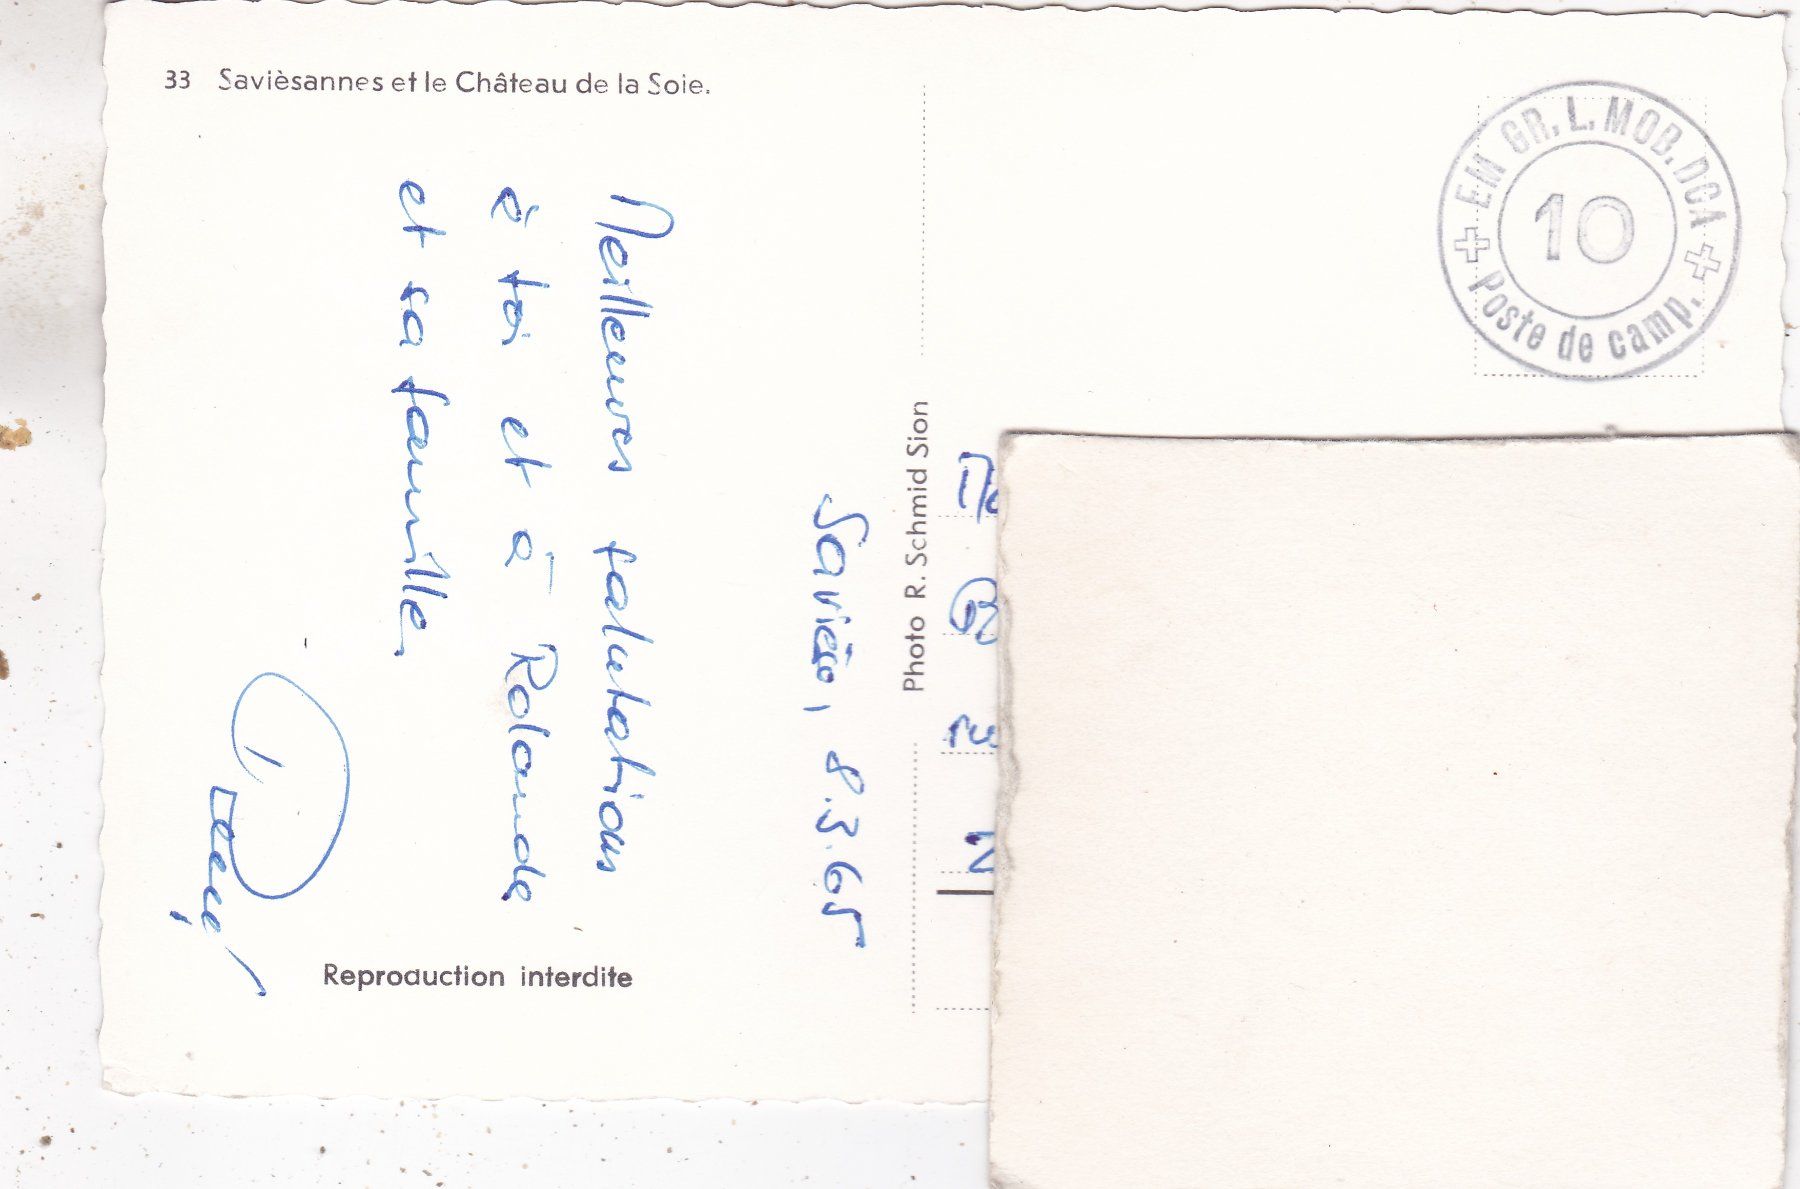 33 Savièsannes et le Château de la Soie.
Savièse, 8.3.65
Meilleures salutations
à toi et à Rolande
et sa famille.
Reproduction interdite
Photo R. Schmid Sion
EM GR. L. MOB. DCA
10
Poste de camp.